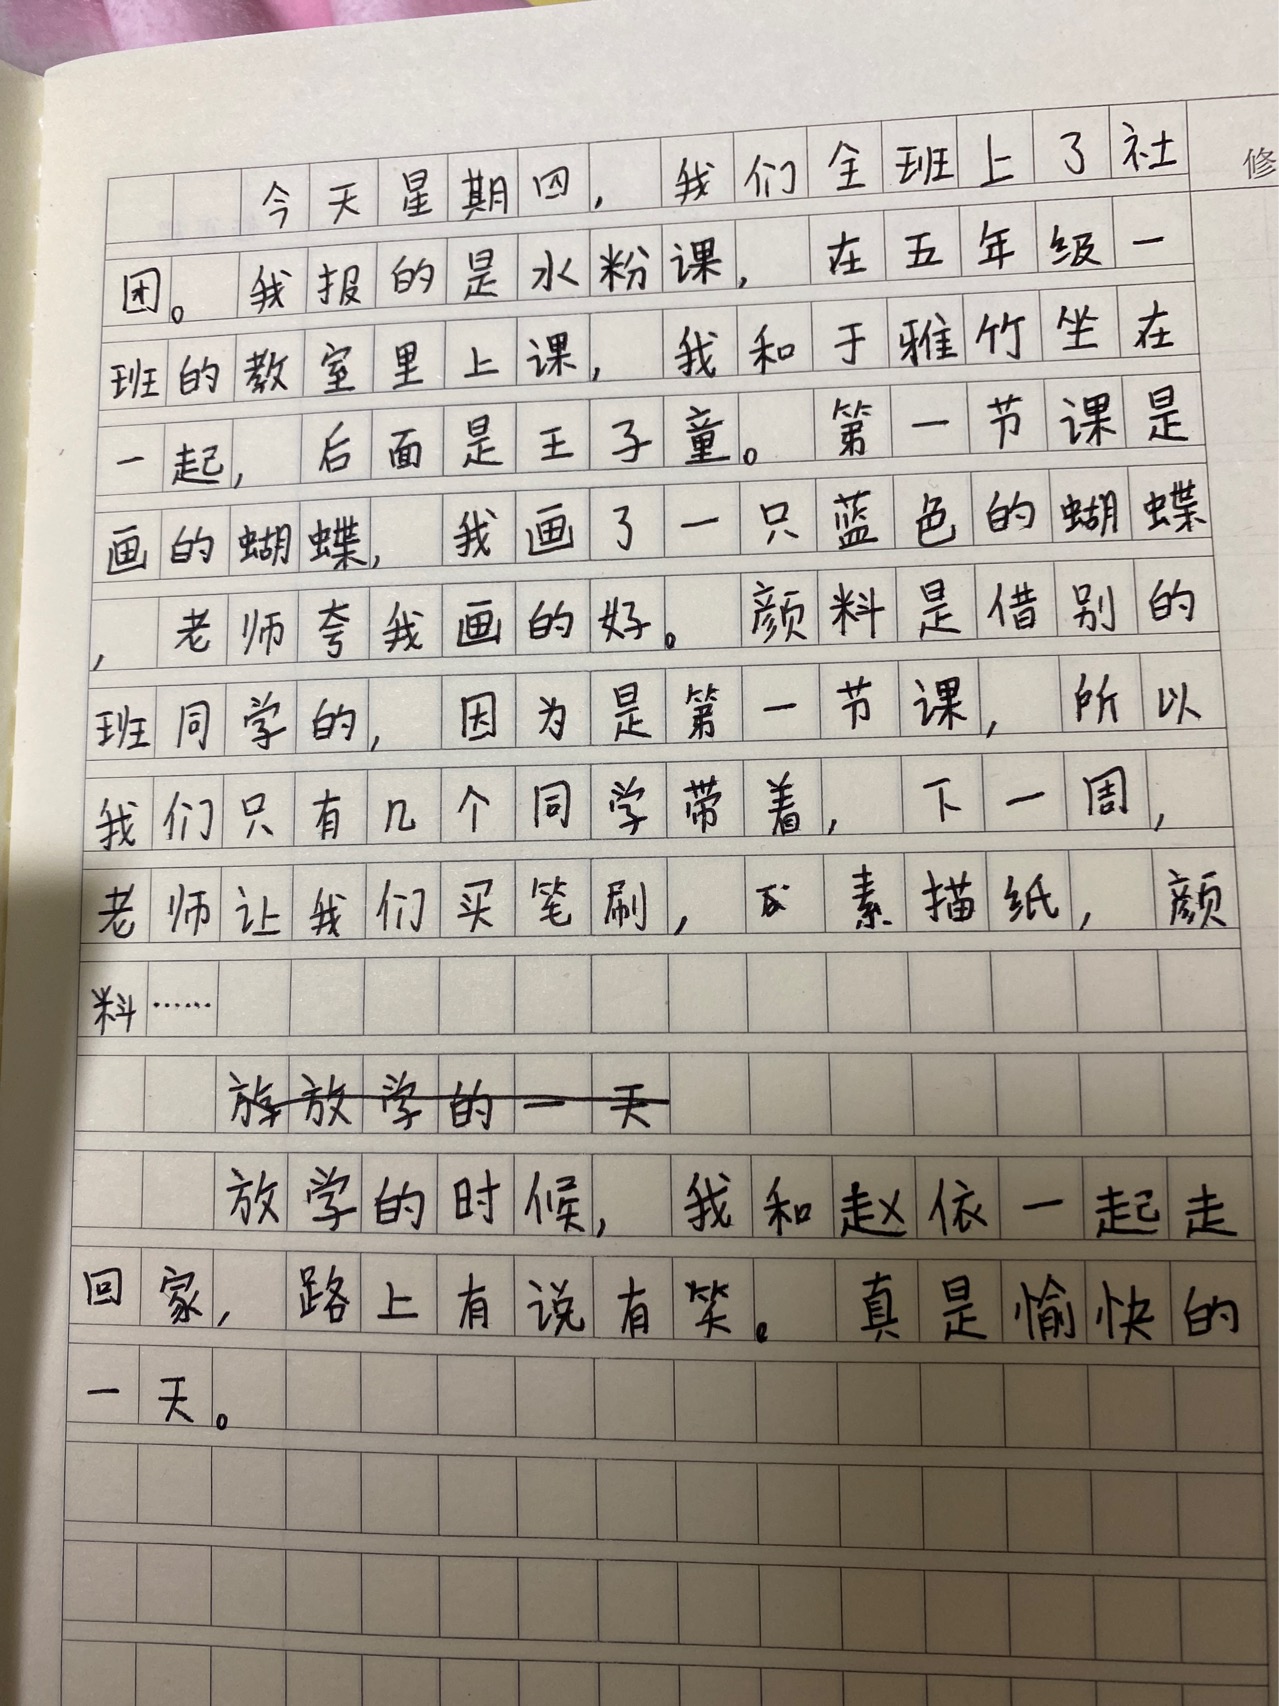 今天星期四，我们全班上了社
修
团。我报的是水粉课，在五年级一
班的教室里上课，我和于雅竹坐在
一起，后面是王子童。第一节课是
画的蝴蝶，我画了一只蓝色的蝴蝶
，老师夸我画的好。颜料是借别的
班同学的，因为是第一节课，所以
我们只有几个同学带着，下一周，
老师让我们买笔刷，素描纸，颜
料……
放学的一天
放学的时候，我和赵依一起走
回家，路上有说有笑。真是愉快的
一天。